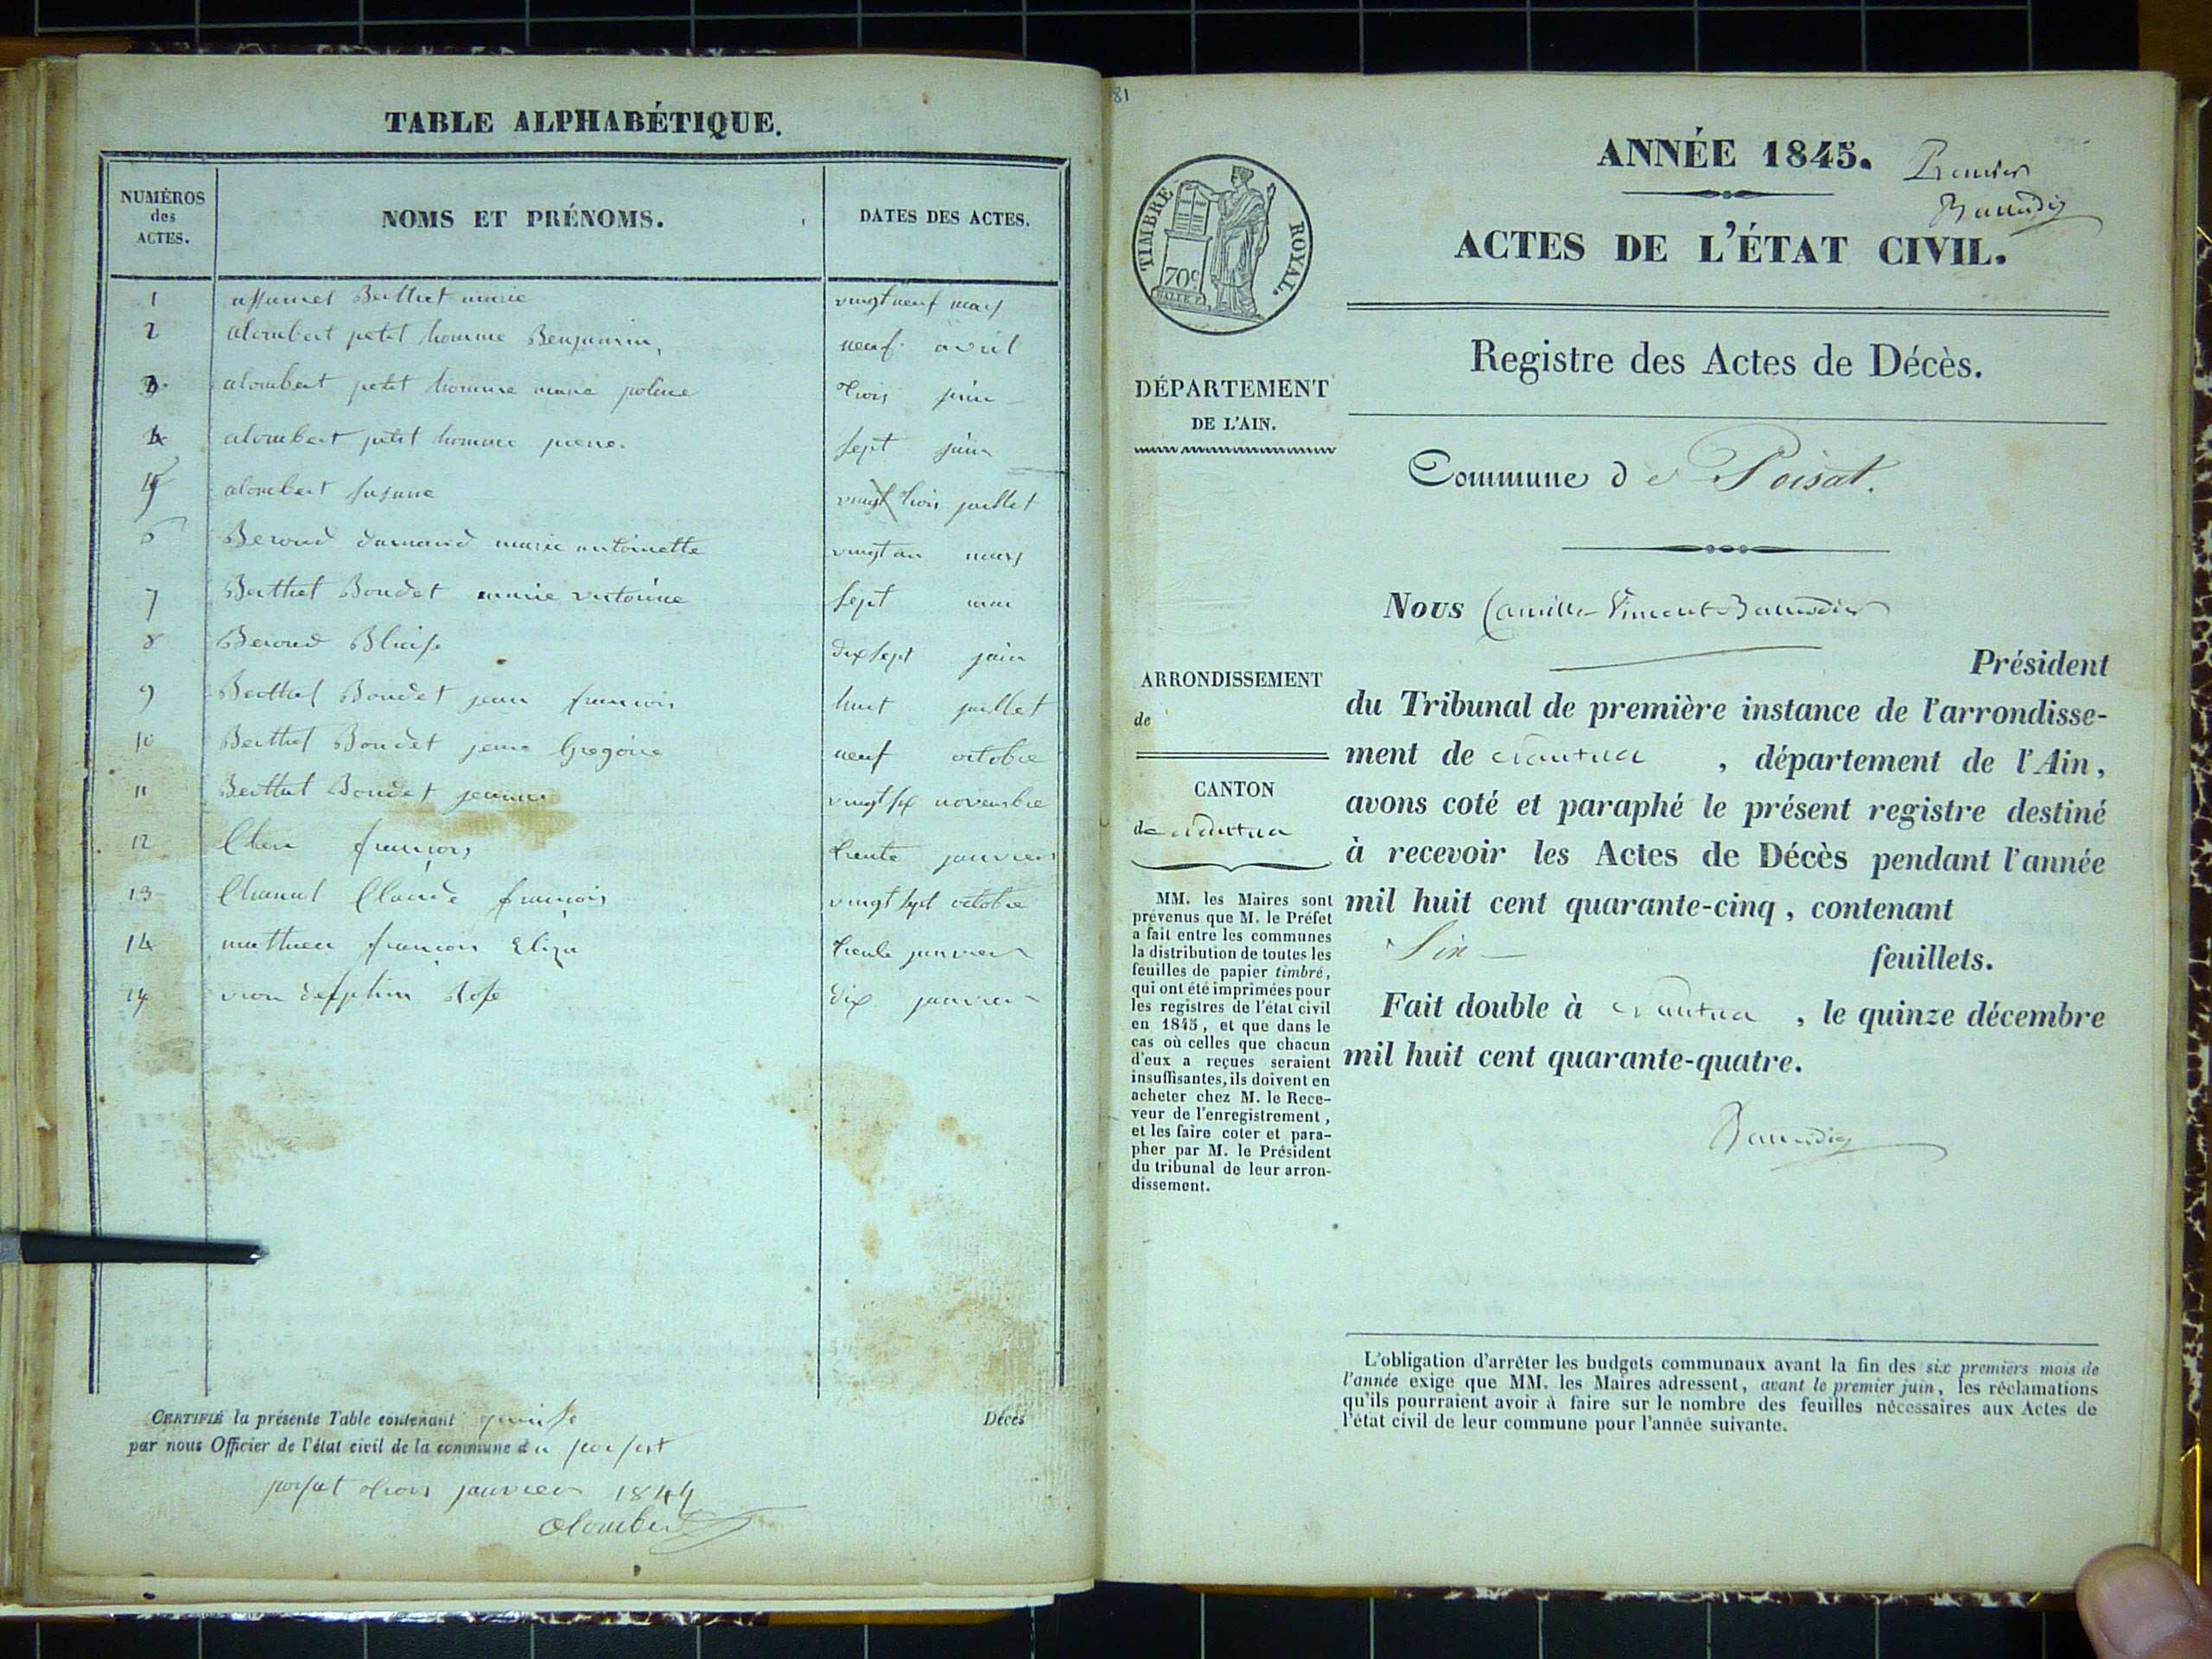 TABLE ALPHABÉTIQUE.
NUMÉROS
des
ACTES.
NOMS ET PRÉNOMS.
DATES DES ACTES.
1 Berthet marie vingt neuf mars
2 alombert petit homme Benjamin, neuf avril
3 alombert petit homme marie trois juin
4 alombert petit homme pierre. sept juin
alombert susane trois juillet
6 Beroud marie antoinette vingt un mars
7 Berthet Boudet marie victorine sept mai
8 Beroud Blaise dix sept juin
9 Berthet Boudet jean francois huit juillet
10 Berthet Boudet Gregoire neuf octobre
11 Berthet Boudet jeanne vingt six novembre
12 francois trente janvier
13 Claude francois vingt sept octobre
14 mathieu francois Eliza trente janvier
delphin Rose dix janvier
CERTIFIÉ la présente Table contenant quinse Décès
par nous Officier de l'état civil de la commune de poisat
poisat trois janvier 1844
alombert
81
ANNÉE 1845.
Premier
Baudin
ACTES DE L'ÉTAT CIVIL.
TIMBRE ROYAL.
70c
Registre des Actes de Décès.
DÉPARTEMENT
DE L'AIN.
Commune de Poisat.
Nous Camille Vincent
Président
ARRONDISSEMENT
de
du Tribunal de première instance de l'arrondisse-
ment de Nantua, département de l'Ain,
CANTON
de Nantua
avons coté et paraphé le présent registre destiné
à recevoir les Actes de Décès pendant l'année
mil huit cent quarante-cinq, contenant
Six feuillets.
Fait double à Nantua, le quinze décembre
mil huit cent quarante-quatre.
MM. les Maires sont
prévenus que M. le Préfet
a fait entre les communes
la distribution de toutes les
feuilles de papier timbré,
qui ont été imprimées pour
les registres de l'état civil
en 1845, et que dans le
cas où celles que chacun
d'eux a reçues seraient
insuffisantes, ils doivent en
acheter chez M. le Rece-
veur de l'enregistrement,
et les faire coter et para-
pher par M. le Président
du tribunal de leur arron-
dissement.
L'obligation d'arrêter les budgets communaux avant la fin des six premiers mois de
l'année exige que MM. les Maires adressent, avant le premier juin, les réclamations
qu'ils pourraient avoir à faire sur le nombre des feuilles nécessaires aux Actes de
l'état civil de leur commune pour l'année suivante.